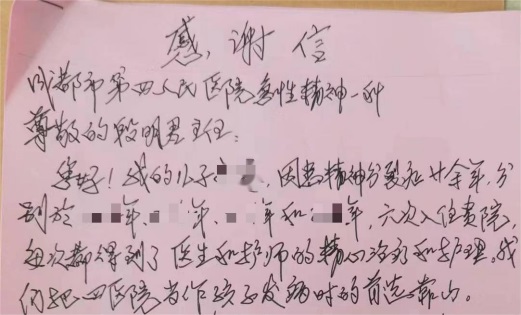 感谢信
成都市第四人民医院急性精神一科
尊敬的殷明男主任：
您好！我的儿子，因患精神分裂症廿余年，分
别於年、年、年和年，六次入住贵院，
每次都得到了医生和护师的精心治疗和护理。我
们把四医院当作孩子发病时的首选靠山。